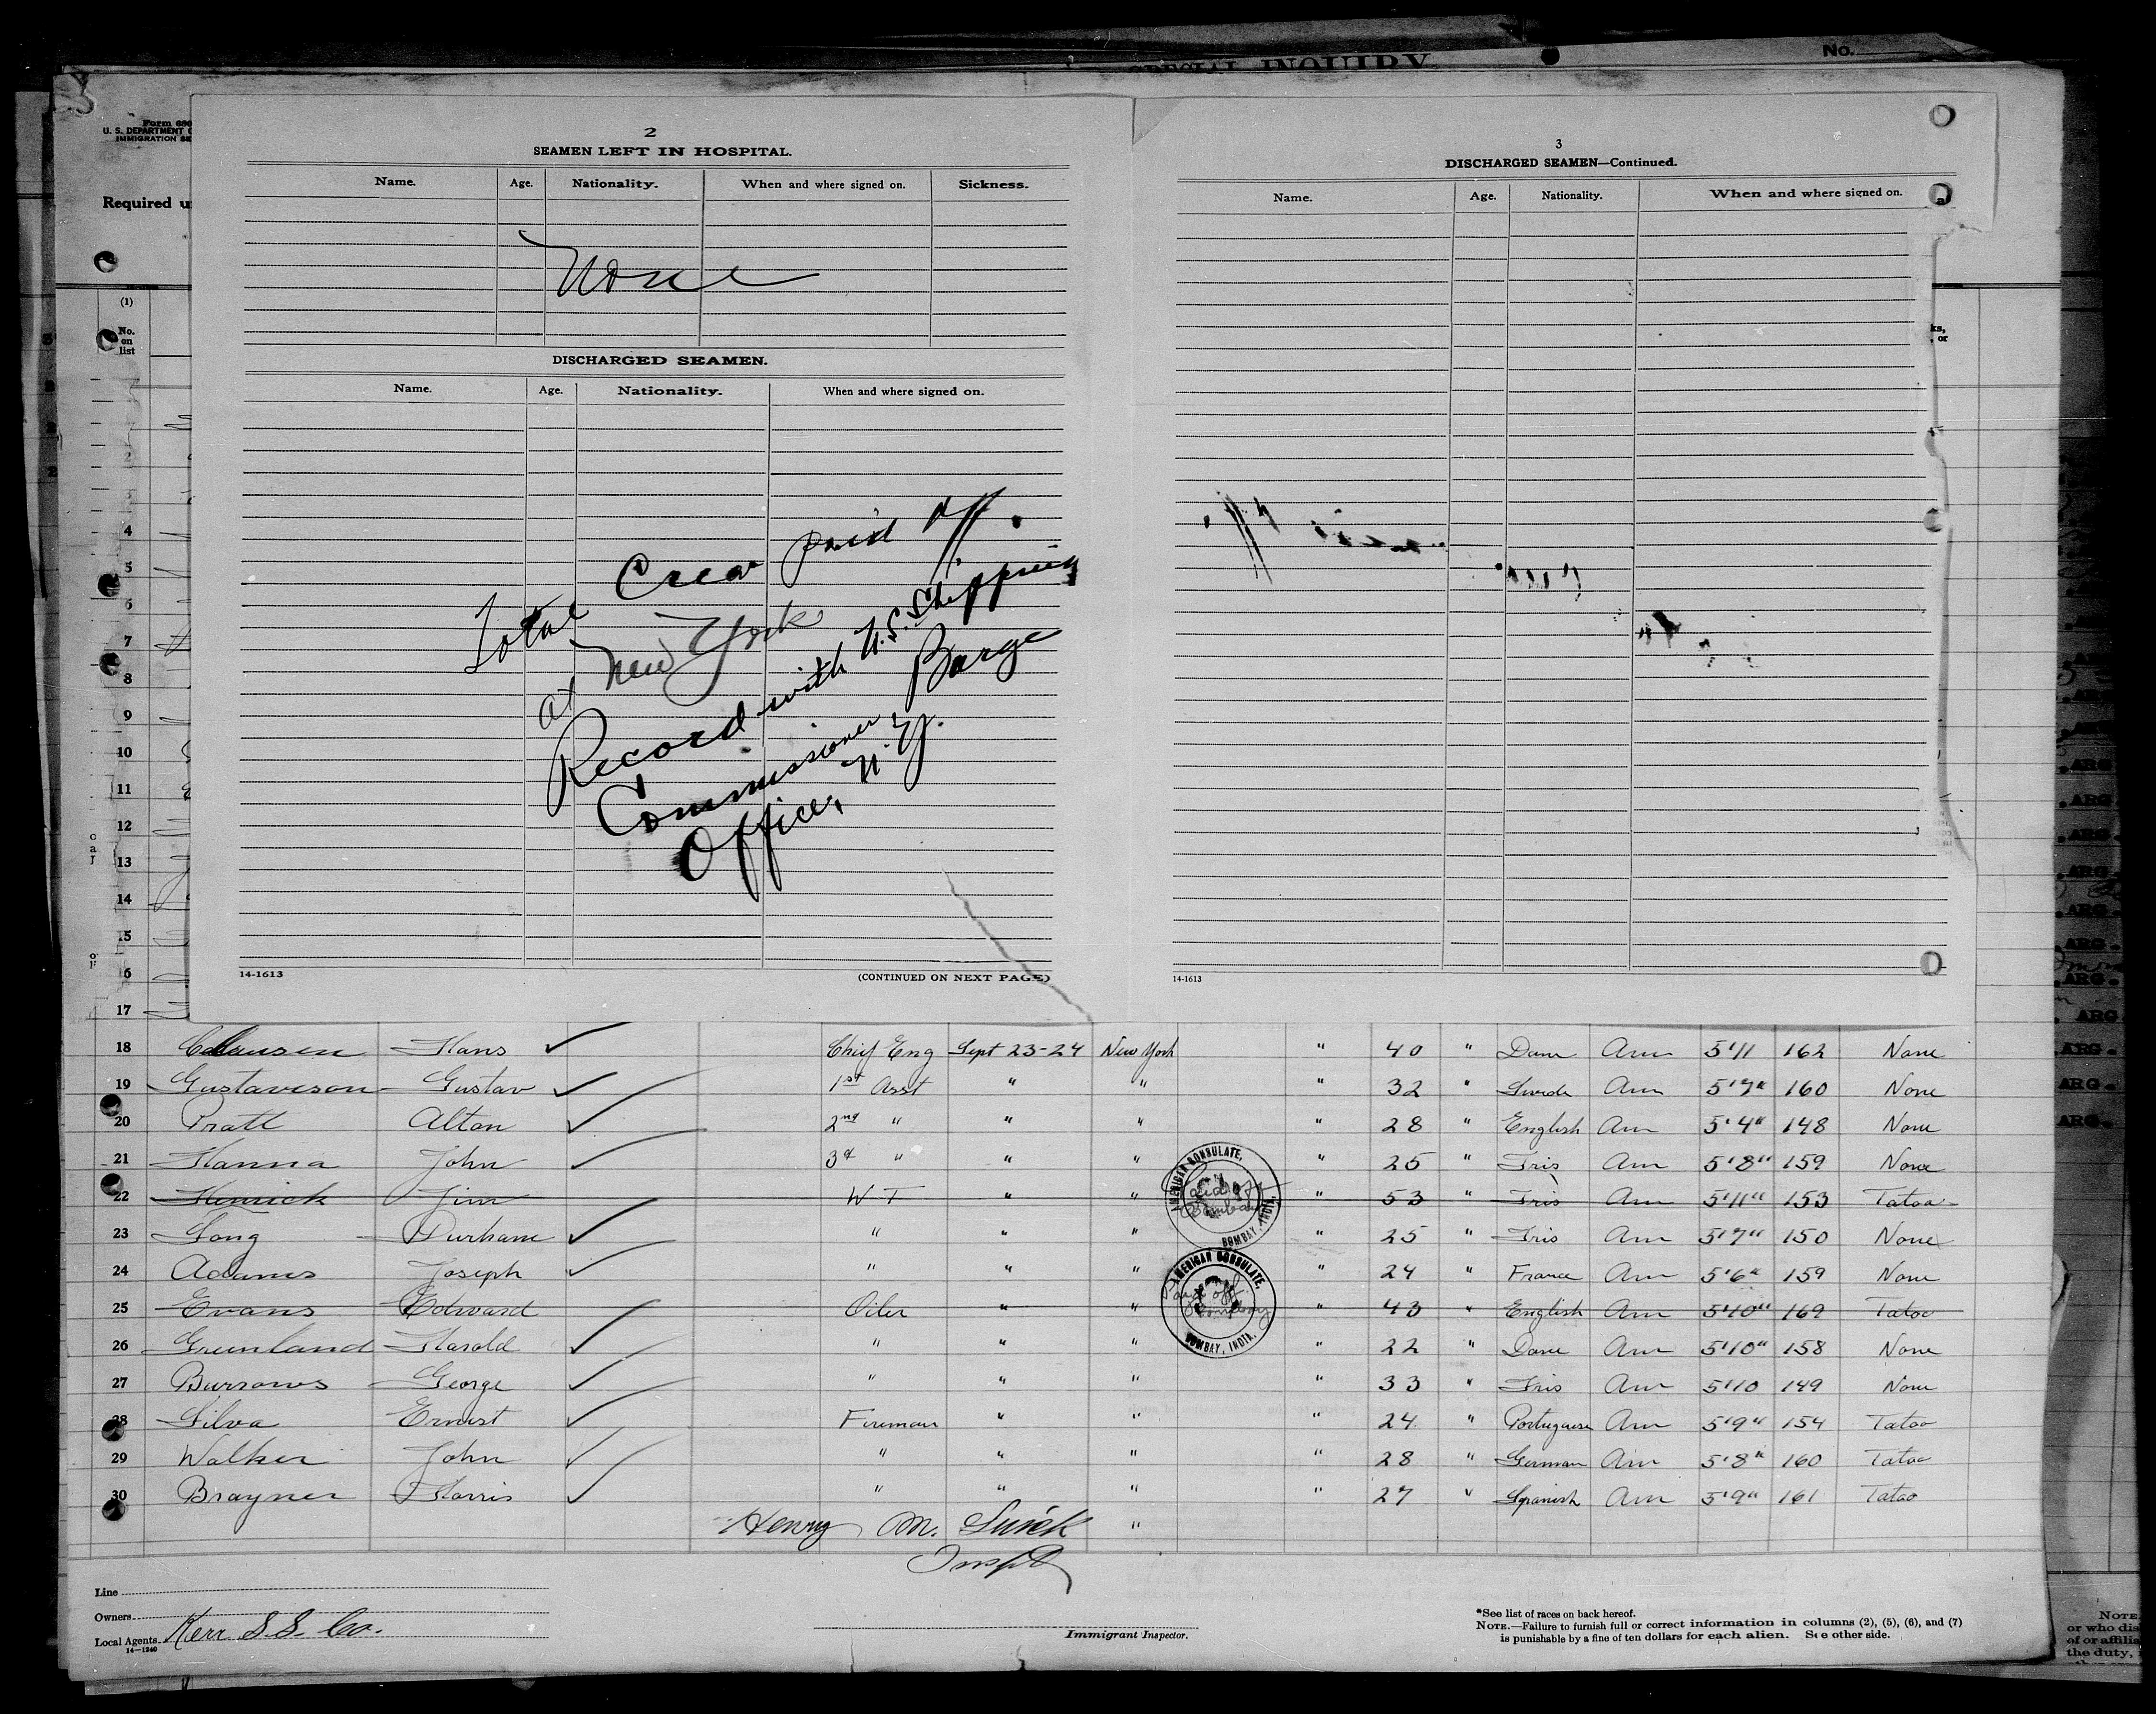 SPECIAL INQUIRY
No.
Form 680
U. S. DEPARTMENT
IMMIGRATION SE
Required u
(1)
No.
on
list
2
SEAMEN LEFT IN HOSPITAL.
Name. Age. Nationality. When and where signed on. Sickness.
None
DISCHARGED SEAMEN.
Name. Age. Nationality. When and where signed on.
Total Crew paid off.
at New York
Record with U.S. Shipping
Commissioner Barge
Office, N.Y.
14-1613 (CONTINUED ON NEXT PAGE)
3
DISCHARGED SEAMEN—Continued.
Name. Age. Nationality. When and where signed on.
14-1613
ks,
or
2
4
5
6
7
8
9
10
11
12
13
14
15
16
17
18 Clausen Hans Chief Eng Sept 23-24 New York " 40 " Dane Am 5'11 162 None
19 Gustaveson Gustav 1st Asst " " " 32 " Swede Am 5'7" 160 None
20 Pratt Alton 2nd " " " " 28 " English Am 5'4" 148 None
21 Hanna John 3d " " " " 25 " Iris Am 5'8" 159 None
22 Henrick Jim W T " " " 53 " Iris Am 5'11" 153 Tatoo
23 Long Durham " " " " 25 " Iris Am 5'7" 150 None
24 Adams Joseph " " " " 24 " France Am 5'6" 159 None
25 Evans Edward Oiler " " " 43 " English Am 5'10" 169 Tatoo
26 Greenland Harold " " " " 22 " Dane Am 5'10" 158 None
27 Burrows George " " " " 33 " Iris Am 5'10 149 None
28 Silva Ernest Fireman " " " 24 " Portuguese Am 5'9" 154 Tatoo
29 Walker John " " " " 28 " German Am 5'8" 160 Tatoo
30 Brayner Harris " " " " 27 " Spanish Am 5'9" 161 Tatoo
AMERICAN CONSULATE,
Paid off
Bombay
BOMBAY, INDIA.
AMERICAN CONSULATE,
Paid off
Bombay
BOMBAY, INDIA.
Henry M. "
Inspt
Line
Owners
Local Agents Kerr S.S. Co.
14-1240
Immigrant Inspector.
*See list of races on back hereof.
NOTE.—Failure to furnish full or correct information in columns (2), (5), (6), and (7)
is punishable by a fine of ten dollars for each alien. See other side.
ARG.
ARG.
ARG.
ARG.
ARG.
ARG.
ARG.
ARG.
ARG.
ARG.
ARG.
NOTE
or who dis
of or affilia
the duty,